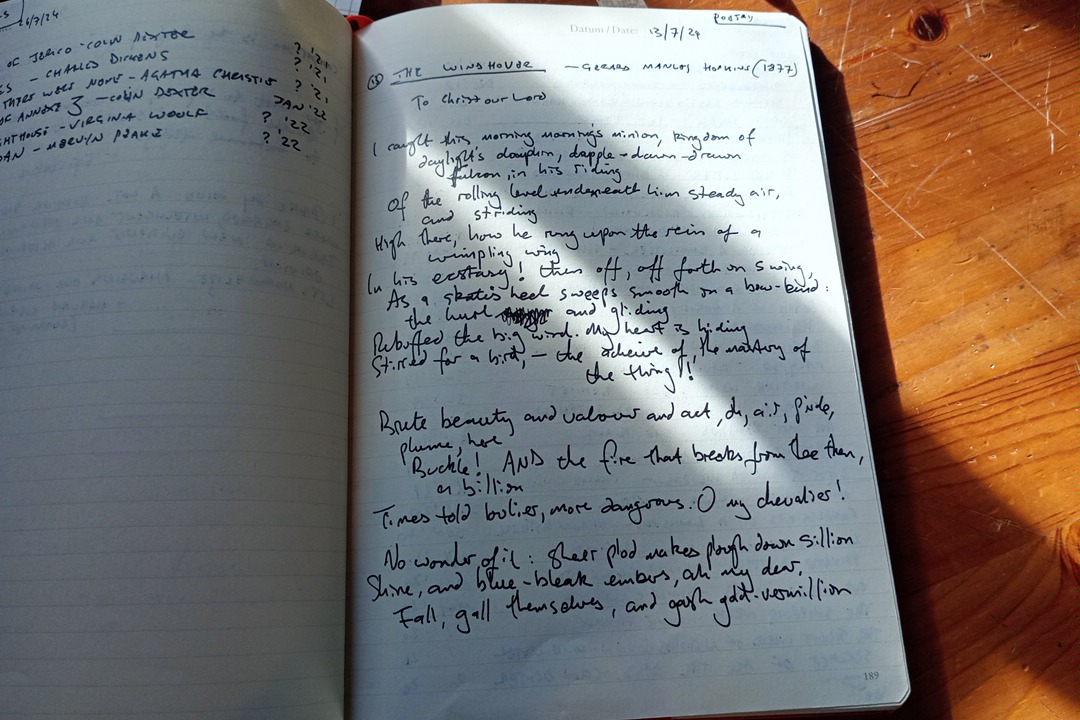 26/7/24
OF JERICO - COLIN DEXTER ? '21
- CHARLES DICKENS ? '21
THERE WERE NONE - AGATHA CHRISTIE ? '21
OF ANNEXE 3 - COLIN DEXTER JAN '22
GHTHOUSE - VIRGINIA WOOLF ? '22
- MERVYN PEAKE ? '22
POETRY
Datum / Date: 13/7/24
THE WINDHOVER - GERARD MANLEY HOPKINS (1877)
To Christ our Lord
I caught this morning morning's minion, kingdom of
daylight's dauphin, dapple-dawn-drawn
falcon, in his riding
Of the rolling level underneath him steady air,
and striding
High there, how he rung upon the rein of a
wimpling wing
In his ecstasy! then off, off forth on swing,
As a skates heel sweeps smooth on a bow-bend:
the hurl and gliding
Rebuffed the big wind. My heart is hiding
Stirred for a bird, - the acheive of, the mastery of
the thing!
Brute beauty and valour and act, oh, air, pride,
plume, here
Buckle! AND the fire that breaks from thee then,
a billion
Times told lovlier, more dangerous. O my chevalier!
No wonder of it: sheer plod makes plough down sillion
Shine, and blue-bleak embers, ah my dear,
Fall, gall themselves, and gash gold-vermillion
189